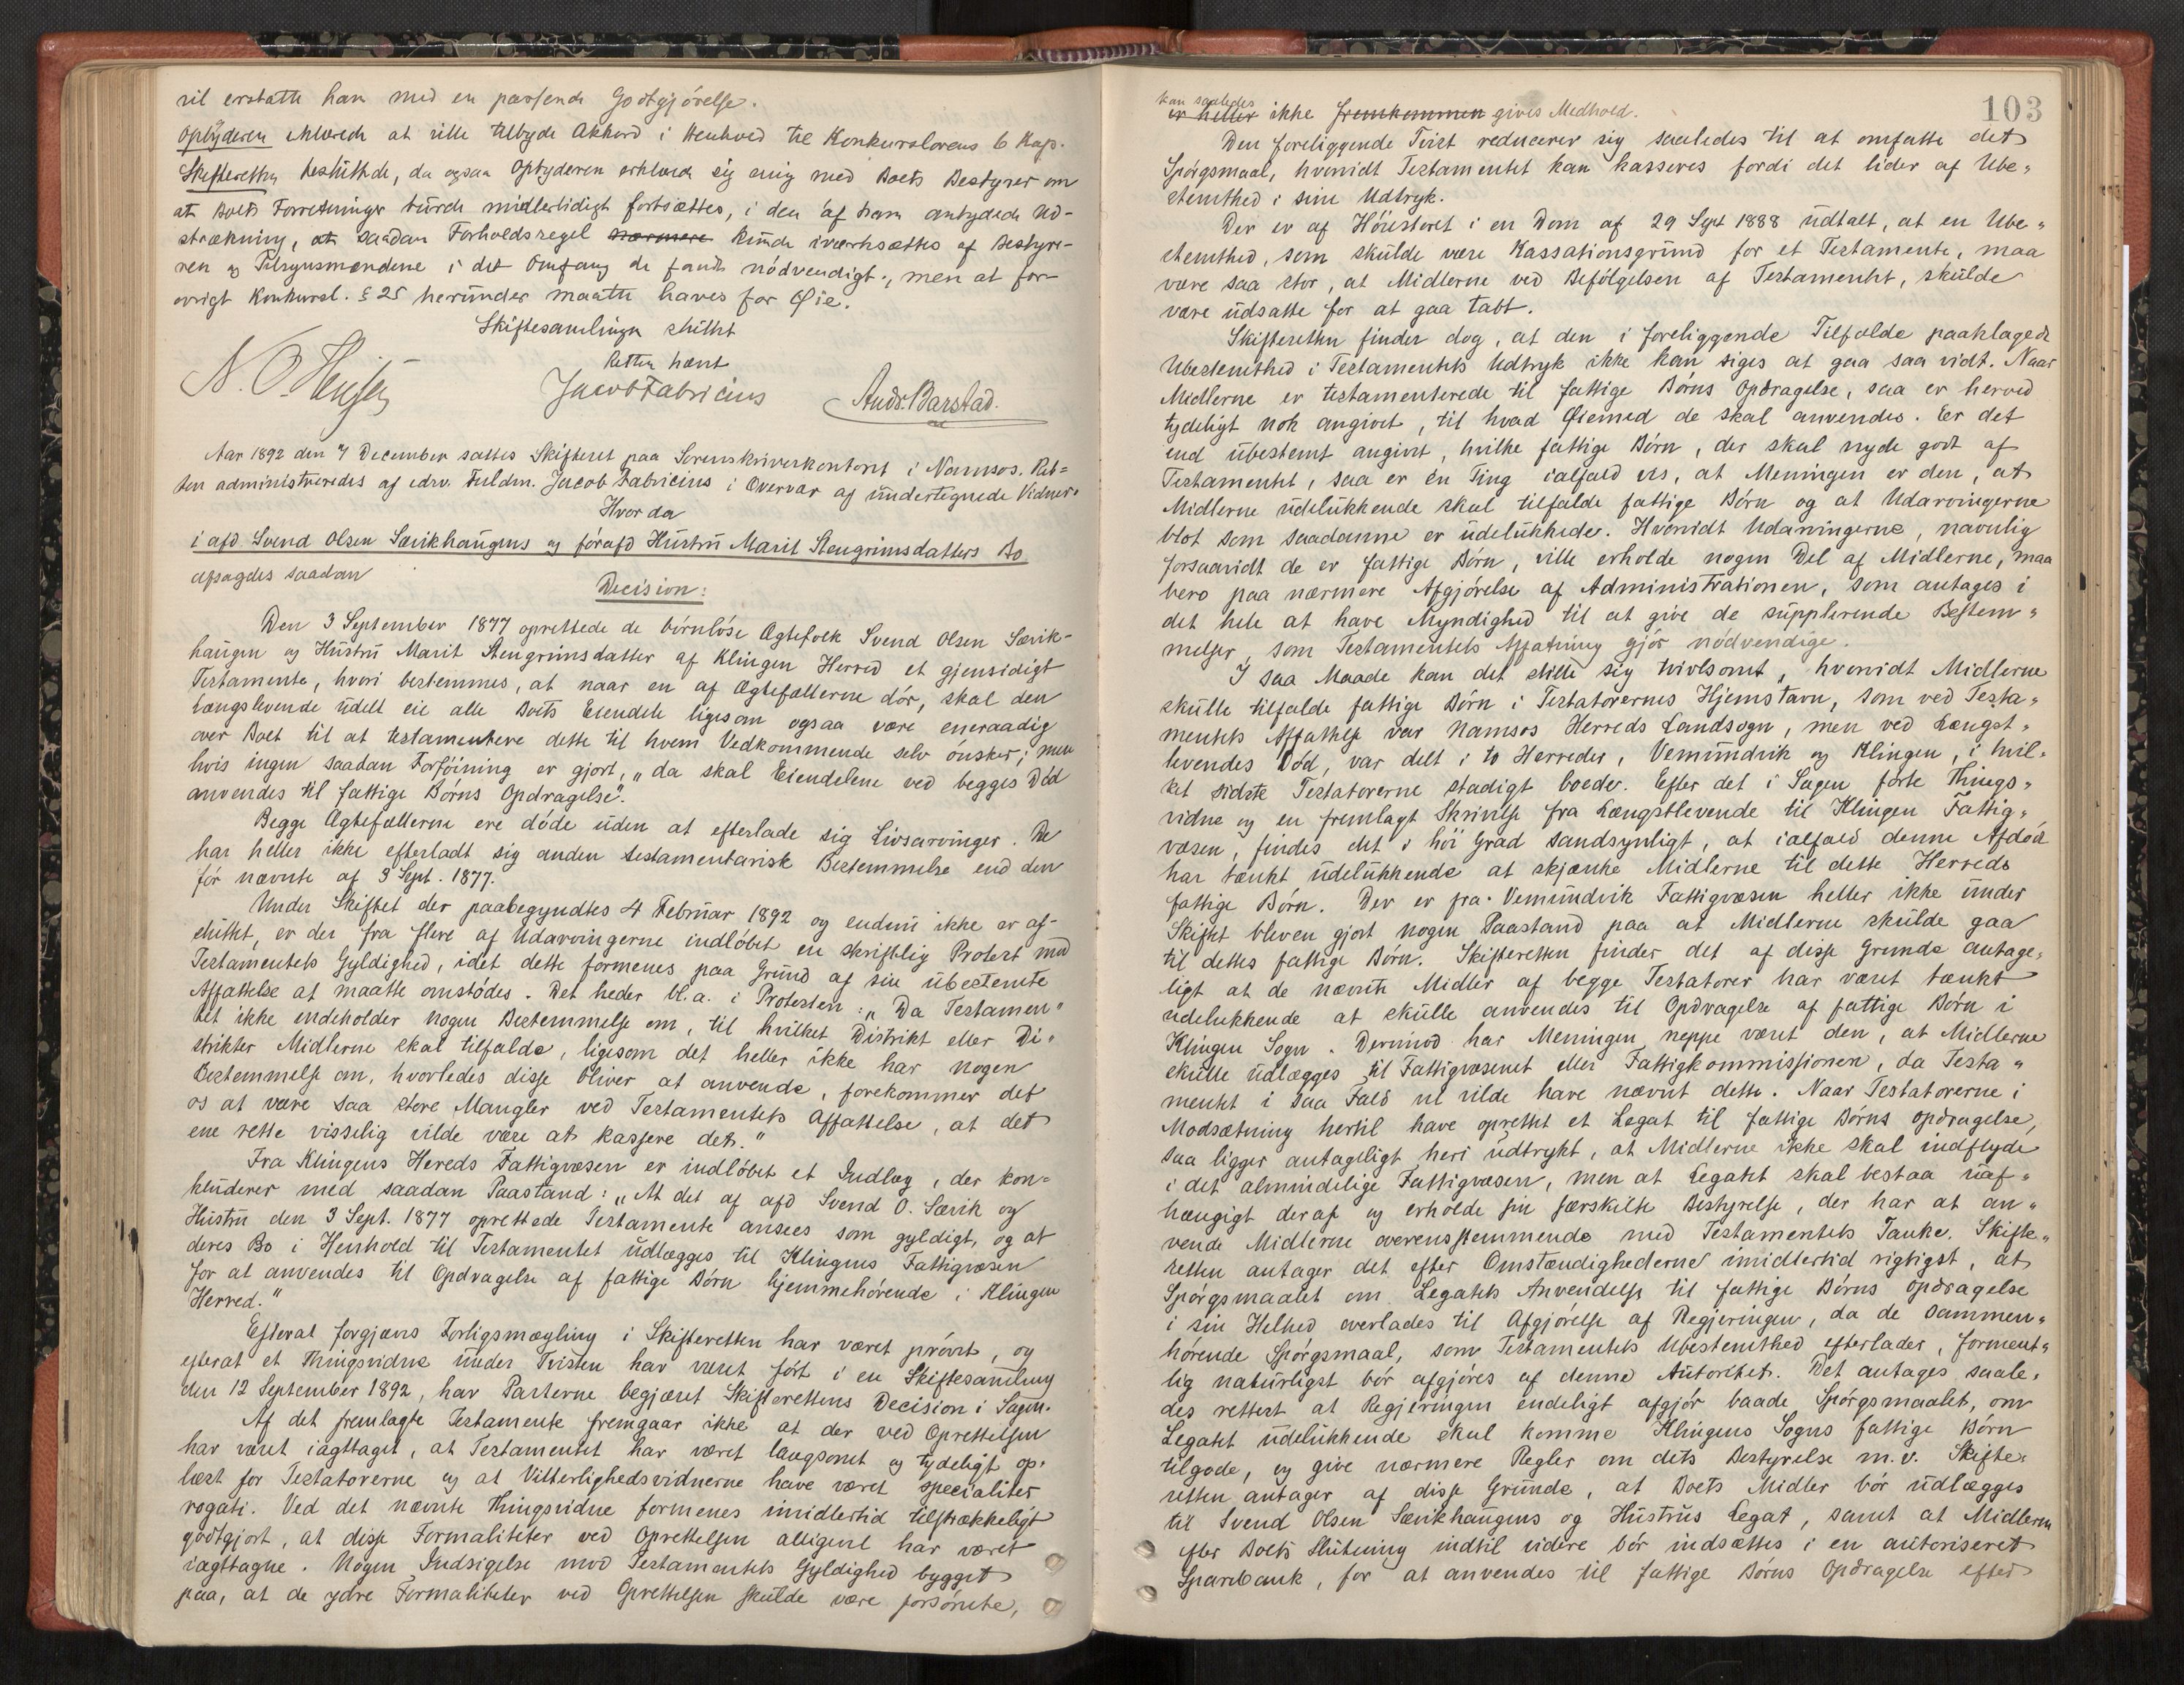 vil erstatte ham med en passende Godtgjörelse.
Opbyderen erklærede at ville tilbyde Akkord i Henhold til Konkurslovens 6 Kap.
Skifteretten besluttede, da ogsaa Opbyderen erklærede sig enig med Boets Bestyrer om
at Boets Forretninger burde midlertidigt fortsættes, i den af ham antydede Ud-
strækning, at saadan Forholdsregel nærmere kunde iværksættes af Bestyre-
ren og Tilsynsmændene i det Omfang de fandt nödvendigt, men at for-
övrigt Konkursl. § 25 herunder maatte haves for Öie.
Skiftesamlingen sluttet
Retten hævet
N. O. Jacob Fabricius Andr. Barstad.
Aar 1892 den 7 December sattes Skifteret paa Sorenskriverkontoret i Namsos. Ret-
ten administreredes af edsv. Fuldm. Jacob Fabricius i Overvær af undertegnede Vidner.
Hvor da
i afd. Svend Olsen Sævikhaugens og förafd Hustru Marit Stengrimsdatters Bo
afsagdes saadan
Decision:
Den 3 September 1877 oprettede de börnlöse Ægtefolk Svend Olsen Sævik-
haugen og Hustru Marit Stengrimsdatter af Klingen Herred et gjensidigt
Testamente, hvori bestemmes, at naar en af Ægtefællerne dör, skal den
Længstlevende udelt eie alle Boets Eiendele ligesom ogsaa være eneraadig
over Boet til at testamentere dette til hvem Vedkommende selv önsker; men
hvis ingen saadan Forföining er gjort, „da skal Eiendelene ved begges Död
anvendes til fattige Börns Opdragelse".
Begge Ægtefællerne ere döde uden at efterlade sig Livsarvinger. De
har heller ikke efterladt sig anden testamentarisk Bestemmelse end den
för nævnte af 3 Sept. 1877.
Under Skiftet der paabegyndtes 4 Februar 1892 og endnu ikke er af-
sluttet, er der fra flere af Udarvingerne indlöbet en skriftlig Protest mod
Testamentets Gyldighed, idet dette formenes paa Grund af sin ubestemte
Affattelse at maatte omstödes. Det heder bl.a. i Protesten: „Da Testamen-
tet ikke indeholder nogen Bestemmelse om, til hvilket Distrikt eller Di-
strikter Midlerne skal tilfalde, ligesom det heller ikke har nogen
Bestemmelse om, hvorledes disse bliver at anvende, forekommer det
os at være saa store Mangler ved Testamentets Affattelse, at det
ene rette visselig vilde være at kassere det."
Fra Klingens Hereds Fattigvæsen er indlöbet et Indlæg, der kon-
kluderer med saadan Paastand: „At det af afd Svend O. Sævik og
Hustru den 3 Sept. 1877 oprettede Testamente ansees som gyldigt, og at
deres Bo i Henhold til Testamentet udlægges til Klingens Fattigvæsen
for at anvendes til Opdragelse af fattige Börn hjemmehörende i Klingen
Herred."
Efterat forgjæves Forligsmægling i Skifteretten har været prövet, og
efterat et Thingsvidne under Tvisten har været fört i en Skiftesamling
den 12 September 1892, har Parterne begjæret Skifterettens Decision i Sagen.
Af det fremlagte Testamente fremgaar ikke at der ved Oprettelsen
har været iagttaget, at Testamentet har været langsomt og tydeligt op-
læst for Testatorerne og at Vitterlighedsvidnerne have været specialiter
rogati. Ved det nævnte Thingsvidne formenes imidlertid tilstrækkeligt
godtgjort, at disse Formaliteter ved Oprettelsen alligevel har været
iagttagne. Nogen Indsigelse mod Testamentets Gyldighed bygget
paa, at de ydre Formaliteter ved Oprettelsen skulde være forsömte,
103
kan saaledes
er heller ikke fremkommen gives Medhold.
Den foreliggende Tvist reducerer sig saaledes til at omfatte det
Spörgsmaal, hvorvidt Testamentet kan kasseres fordi det lider af Ube-
stemthed i sine Udtryk.
Der er af Höiesteret i en Dom af 29 Sept 1888 udtalt, at en Ube-
stemthed, som skulde være Kassationsgrund for et Testamente, maa
være saa stor, at Midlerne ved Befölgelsen af Testamentet, skulde
være udsatte for at gaa tabt.
Skifteretten finder dog, at den i foreliggende Tilfælde paaklagede
Ubestemthed i Testamentets Udtryk ikke kan siges at gaa saa vidt. Naar
Midlerne er testamenterede til fattige Börns Opdragelse, saa er herved
tydeligt nok angivet, til hvad Öiemed de skal anvendes. Er det
end ubestemt angivet, hvilke fattige Börn, der skal nyde godt af
Testamentet, saa er en Ting ialfald vis, at Meningen er den, at
Midlerne udelukkende skal tilfalde fattige Börn og at Udarvingerne
blot som saadanne er udelukkede. Hvorvidt Udarvingerne, navnlig
forsaavidt de er fattige Börn, ville erholde nogen Del af Midlerne, maa
bero paa nærmere Afgjörelse af Administrationen, som antages i
det hele at have Myndighed til at give de supplerende Bestem-
melser, som Testamentets Affatning gjör nödvendige.
I saa Maade kan det stille sig tvivlsomt, hvorvidt Midlerne
skulle tilfalde fattige Börn i Testatorernes Hjemstavn, som ved Testa-
mentets Affattelse var Namsos Herreds Landsogn, men ved Længst-
levendes Död, var delt i to Herreder, Vemundvik og Klingen, i hvil-
ket sidste Testatorerne stadigt boede. Efter det i Sagen förte Things-
vidne og en fremlagt Skrivelse fra Længstlevende til Klingen Fattig-
væsen, findes det i höi Grad sandsynligt, at ialfald denne Afdöd
har tænkt udelukkende at skjænke Midlerne til dette Herreds
fattige Börn. Der er fra Vemundvik Fattigvæsen heller ikke under
Skiftet bleven gjort nogen Paastand paa at Midlerne skulde gaa
til dettes fattige Börn. Skifteretten finder det af disse Grunde antage-
ligt at de nævnte Midler af begge Testatorer har været tænkt
udelukkende at skulle anvendes til Opdragelse af fattige Börn i
Klingen Sogn. Derimod har Meningen neppe været den, at Midlerne
skulle udlægges til Fattigvæsenet eller Fattigkommissionen, da Testa-
mentet i saa Fald vel vilde have nævnt dette. Naar Testatorerne i
Modsætning hertil have oprettet et Legat til fattige Börns Opdragelse,
saa ligger antageligt heri udtrykt, at Midlerne ikke skal indflyde
i det almindelige Fattigvæsen, men at Legatet skal bestaa uaf-
hængigt deraf og erholde sin særskilte Bestyrelse, der har at an-
vende Midlerne overensstemmende med Testamentets Tanke. Skifte-
retten antager det efter Omstændighederne imidlertid rigtigst, at
Spörgsmaalet om Legatets Anvendelse til fattige Börns Opdragelse
i sin Helhed overlades til Afgjörelse af Regjeringen, da de sammen-
hörende Spörgsmaal, som Testamentets Ubestemthed efterlader, forment-
lig naturligst bör afgjöres af denne Autoritet. Det antages saale-
des rettest at Regjeringen endeligt afgjör baade Spörgsmaalet, om
Legatet udelukkende skal komme Klingens Sogns fattige Börn
tilgode, og give nærmere Regler om dets Bestyrelse m.v. Skifte-
retten antager af disse Grunde, at Boets Midler bör udlægges
til Svend Olsen Sævikhaugens og Hustrus Legat, samt at Midlerne
efter Boets Slutning indtil videre bör indsættes i en autoriseret
Sparebank, for at anvendes til fattige Börns Opdragelse efter